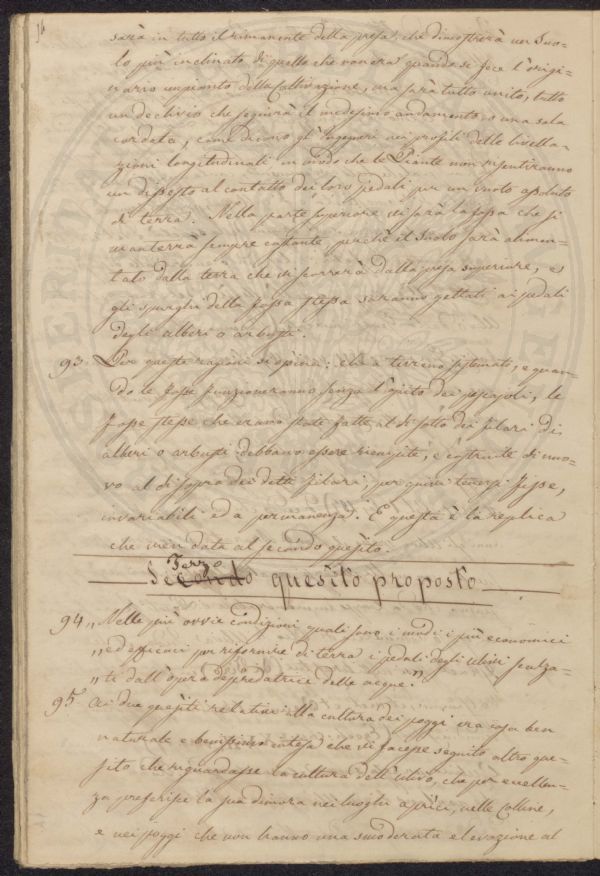 sarà in tutto il rimanente della presa, che dimostrerà un Suo-
lo più inclinato di quello che non era quando si fece l'origi-
nario impianto della Coltivazione, ma sarà tutto unito, tutto
un declivio che seguirà il medesimo andamento o una sola
cordeta, come dicono gl'Ingegneri nei profili delle livella-
zioni longitudinali in modo che le Piante non risentiranno
un dissesto al contatto dei loro pedali per un vuoto assoluto
di terra. Nella parte superiore vi sarà la fossa che si
manterrà sempre costante perchè il Suolo sarà alimen-
tato dalla terra che vi scorrerà dalla presa superiore, e
gli spurghi della Fossa stessa saranno gettati ai pedali
degli alberi o arbusti.
93. Per queste ragioni si opina: che a terreno sistemati, e quan-
do le Fosse funzioneranno senza l'ajuto dei pescajoli, le
Fosse stesse che erano state fatte al di sotto dei filari di
alberi o arbusti debbano essere riempite, e costruite di nuo-
vo al di sopra dei detti filari, per quivi tenersi fisse,
invariabili ed a permanenza. E questa è la replica
che vien data al secondo quesito.
Terzo
Secondo quesito proposto
94 „ Nelle più ovvie condizioni quali sono i modi i più economici
„ ed efficaci per rifornire di terra i pedali degli ulivi scalza-
„ ti dall'opera depredatrice delle acque."
95. Ai due quesiti relativi alla cultura dei poggi era cosa ben
naturale e benissimo intesa che vi facesse seguito altro que-
sito che riguardasse la cultura dell'ulivo, che per eccellen-
za preferisce la sua dimora nei luoghi aprici, nelle Colline,
e nei poggi che non hanno una smoderata elevazione al